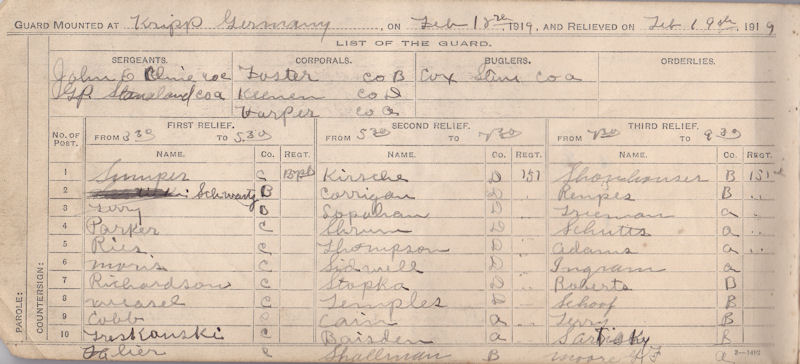 GUARD MOUNTED AT Kripp Germany, ON Feb 18, 1919, AND RELIEVED ON Feb 19th, 1919
LIST OF THE GUARD.
SERGEANTS. CORPORALS. BUGLERS. ORDERLIES.
John E Foster Co B Cox Co A
Co A Keenen Co D
Harper Co C
No. of Post. FIRST RELIEF. SECOND RELIEF. THIRD RELIEF.
FROM 330 TO 530 FROM 530 TO 730 FROM 730 TO 930
NAME. Co. REGT. NAME. Co. REGT. NAME. Co. REGT.
1 C Kirsche D 151 B 151
2 Schwartz B Corrigan D " B "
3 Terry B D A
4 Parker C Shrum D " Schutts A
5 Ries C Thompson D Adams A
6 Moris C Sidwell D Ingram A
7 Richardson C Stopka D Roberts B
8 Measel C Temples D Schoof B
9 Cobb C Cain A Terry B
10 Treskonski C Baisden A B
C Shallman B Moore
PAROLE:
COUNTERSIGN: